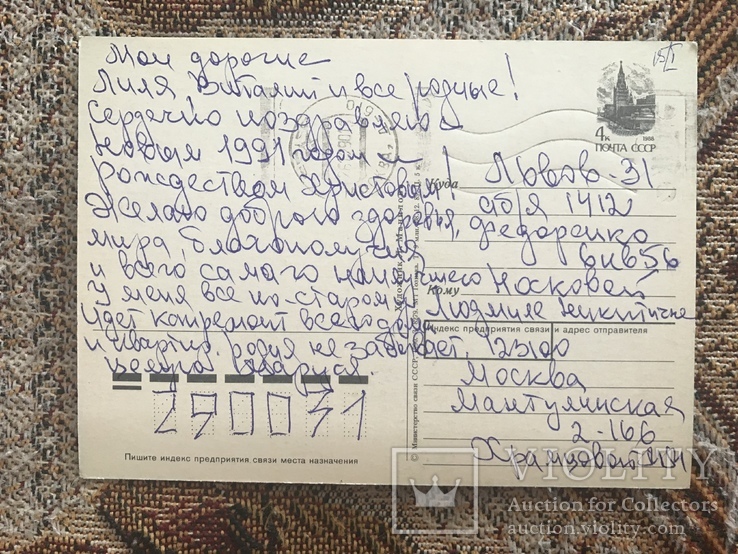 Мои дорогие
Лиля Виталий и все родные!
Сердечно поздравляю с
Новым 1991 годом и
рождеством Христовым!
Желаю доброго здоровья,
мира, благополучия
и всего самого наилучшего
У меня все по-старому
идет капремонт всего дома
и квартир. родня не забывает,
целую Мария.
290031
Пишите индекс предприятия связи места назначения
15/I
4к
1988
ПОЧТА СССР
Куда
Львов-31
1412
Федоренко
6 кв 56
Кому
Носковой
Людмиле Никитичне
Индекс предприятия связи и адрес отправителя
123100
Москва
Мантулинская
2-166
Министерство связи СССР
VIOLITY
Auction for Collectors
auction.violity.com